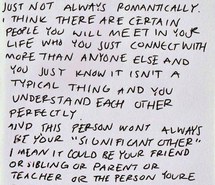 JUST NOT ALWAYS ROMANTICALLY.
I THINK THERE ARE CERTAIN
PEOPLE YOU WILL MEET IN YOUR
LIFE WHO YOU JUST CONNECT WITH
MORE THAN ANYONE ELSE AND
YOU JUST KNOW IT ISN'T A
TYPICAL THING AND YOU
UNDERSTAND EACH OTHER
PERFECTLY.
AND THIS PERSON WONT ALWAYS
BE YOUR "SIGNIFICANT OTHER"
I MEAN IT COULD BE YOUR FRIEND
OR SIBLING OR PARENT OR
TEACHER OR THE PERSON YOURE